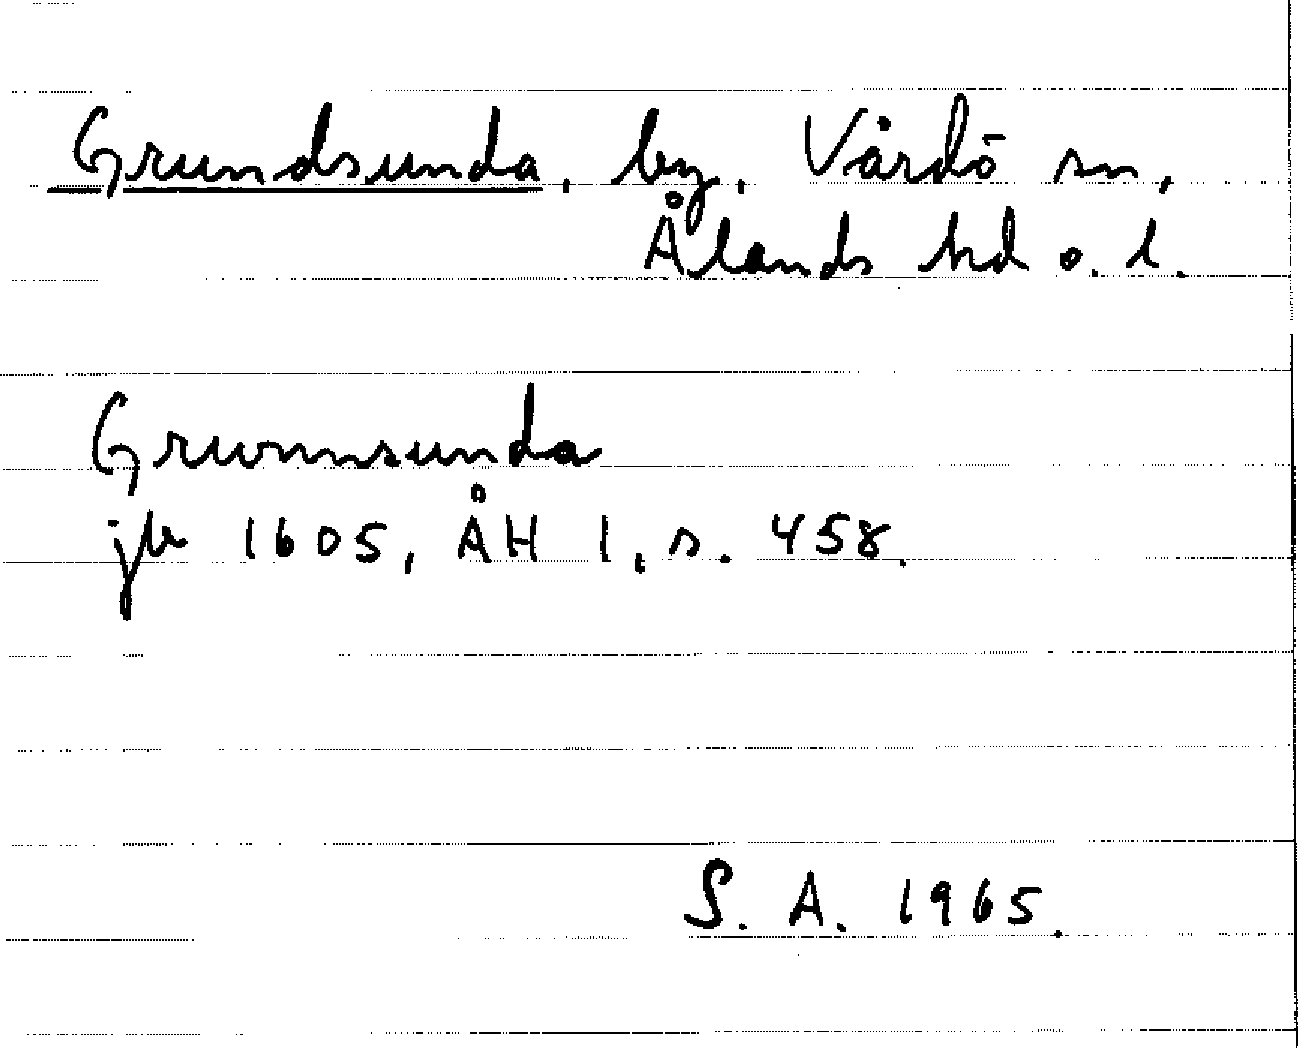 Grundsunda, by, Vårdö sn,
Ålands hd o. l.
Grwmnsunda
jb 1605, ÅH 1, s. 458.
S. A. 1965.